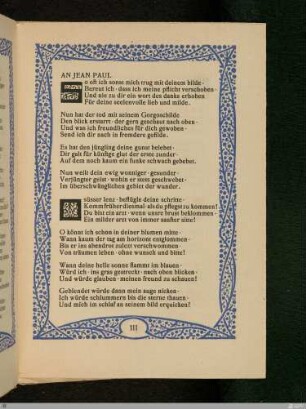 AN JEAN PAUL
o oft ich sonst mich trug mit deinem bilde ·
Bereut ich · dass ich meine pflicht verschoben ·
Und nie zu dir ein wort des danks erhoben
Für deine seelenvolle lieb und milde.
Nun hat der tod mit seinem Gorgoschilde
Den blick erstarrt · der gern geschaut nach oben ·
Und was ich freundliches für dich gewoben ·
Send ich dir nach in fremdere gefilde.
Es hat den jüngling deine gunst belebet ·
Dir galt für künftge glut der erste zunder ·
Auf dem noch kaum ein funke schwach gebebet.
Nun weilt dein ewig wonniger · gesunder ·
Verjüngter geist · wohin er sonst geschwebet ·
Im überschwänglichen gebiet der wunder.
süsser lenz · beflügle deine schritte ·
Komm früher diesmal als du pflegst zu kommen!
Du bist ein arzt · wenn unsre brust beklommen ·
Ein milder arzt von immer sanfter sitte!
O könnt ich schon in deiner blumen mitte ·
Wann kaum der tag am horizont entglommen ·
Bis er ins abendrot zuletzt verschwommen ·
Von träumen leben · ohne wunsch und bitte!
Wann deine helle sonne flammt im blauen ·
Würd ich · ins gras gestreckt · nach oben blicken ·
Und würde glauben · meinen freund zu schauen!
Geblendet würde dann mein auge nicken ·
Ich würde schlummern bis die sterne thauen ·
Und mich im schlaf an seinem bild erquicken!
III